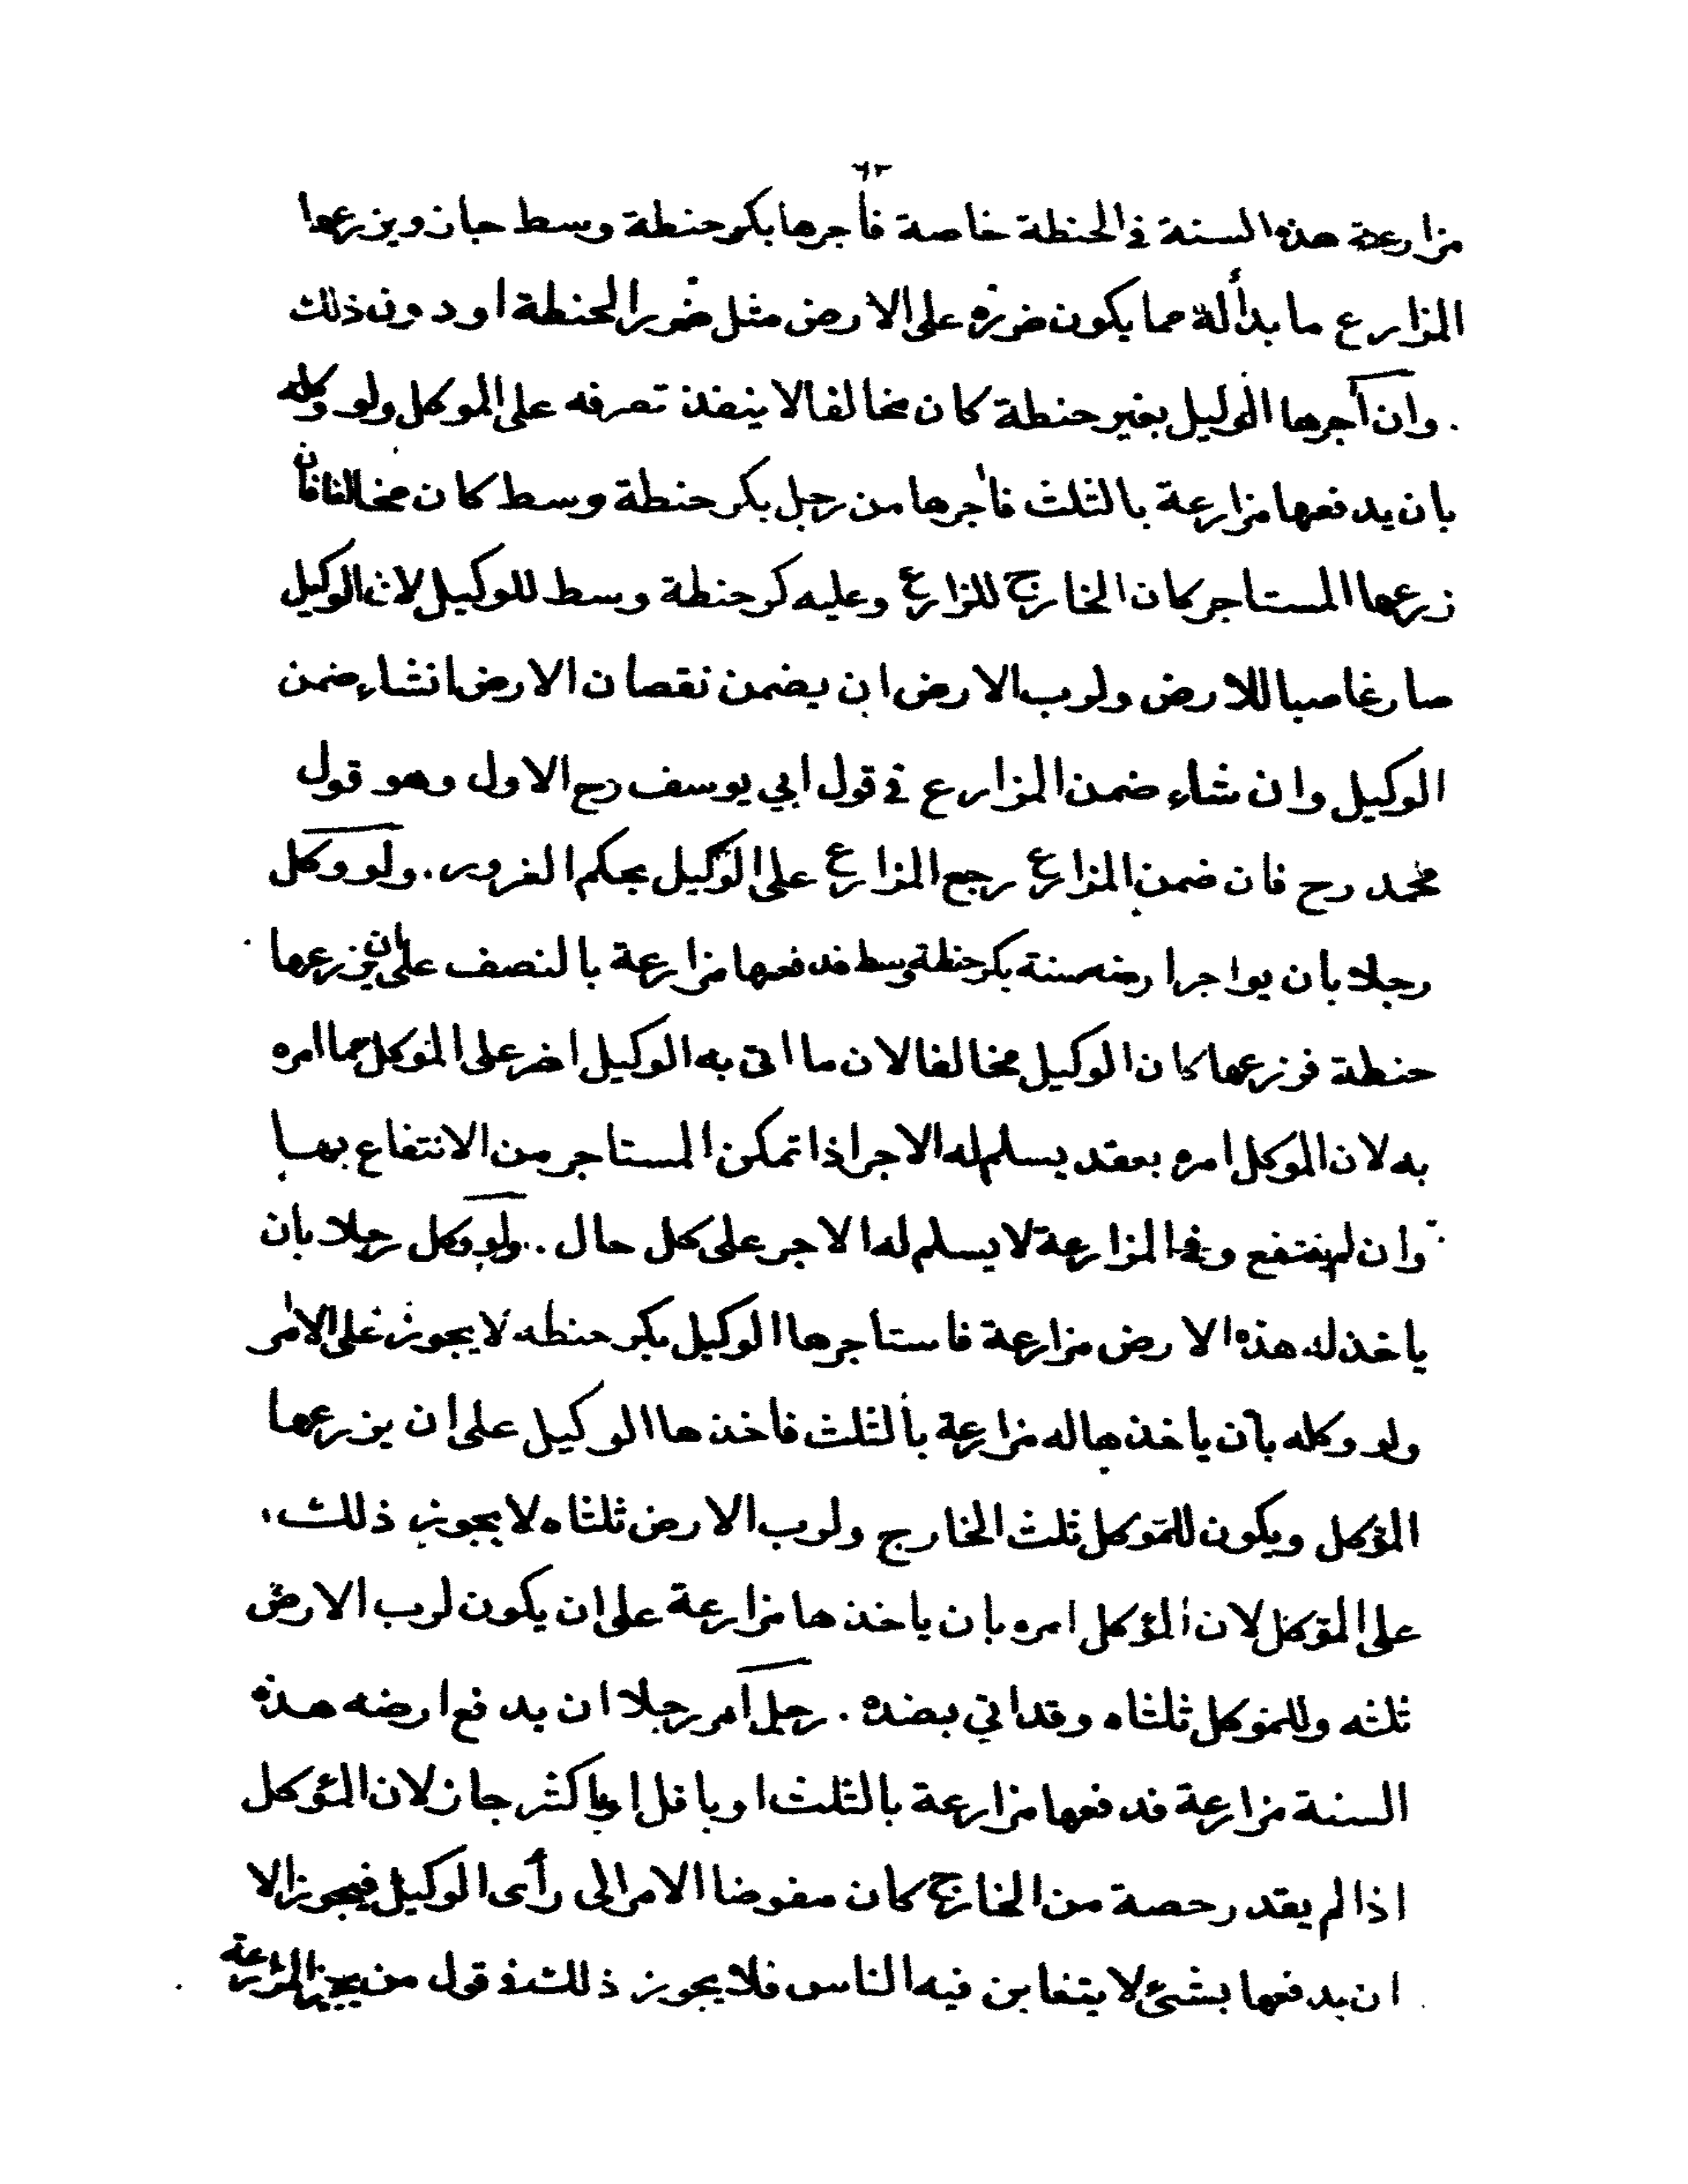 ٦٢
مزارعة هذه السنة في الحنطة خاصة فأجرها بكر حنطة وسط جاز ويزرعها
المزارع ما بدأ له مما يكون ضرره على الارض مثل ضرر الحنطة او دون ذلك
وان آجرها الوكيل بغير حنطة كان مخالفا لا ينفذ تصرفه على الموكل ولو وكله
بان يدفعها مزارعة بالثلث فأجرها من رجل بكر حنطة وسط كان مخالفا فان
زرعها المستاجر كان الخارج للزارع وعليه كر حنطة وسط للوكيل لان الوكيل
صار غاصبا للارض ولرب الارض ان يضمن نقصان الارض انشاء ضمن
الوكيل وان شاء ضمن المزارع في قول ابي يوسف رح الاول وهو قول
محمد رح فان ضمن المزارع رجع المزارع على الوكيل بحكم الغرور . ولو وكل
رجلا بان يواجر ارضه سنة بكر حنطة وسط فدفعها مزارعة بالنصف على ان يزرعها
حنطة فزرعها كان الوكيل مخالفا لان ما اتى به الوكيل اضر على الموكل مما امره
به لان الموكل امره بعقد يسلم له الاجر اذا تمكن المستاجر من الانتفاع بها
وان لم ينتفع وفي المزارعة لا يسلم له الاجر على كل حال . ولو وكل رجلا بان
ياخذ له هذه الارض مزارعة فاستاجرها الوكيل بكر حنطه لا يجوز على الامر
ولو وكله بان ياخذها له مزارعة بالثلث فاخذها الوكيل على ان يزرعها
المؤكل ويكون للمؤكل ثلث الخارج ولرب الارض ثلثاه لا يجوز ذلك
على المؤكل لان المؤكل امره بان ياخذها مزارعة على ان يكون لرب الارض
ثلثه وللمؤكل ثلثاه وقد اتي بضده . رجل امر رجلا ان يدفع ارضه هذه
السنة مزارعة فدفعها مزارعة بالثلث او باقل او باكثر جاز لان المؤكل
اذا لم يقدر حصة من الخارج كان مفوضا الامر الى رأى الوكيل فيجوز الا
ان يدفعها بشئ لا يتغابن فيه الناس فلا يجوز ذلك في قول من يجيز المزارعة